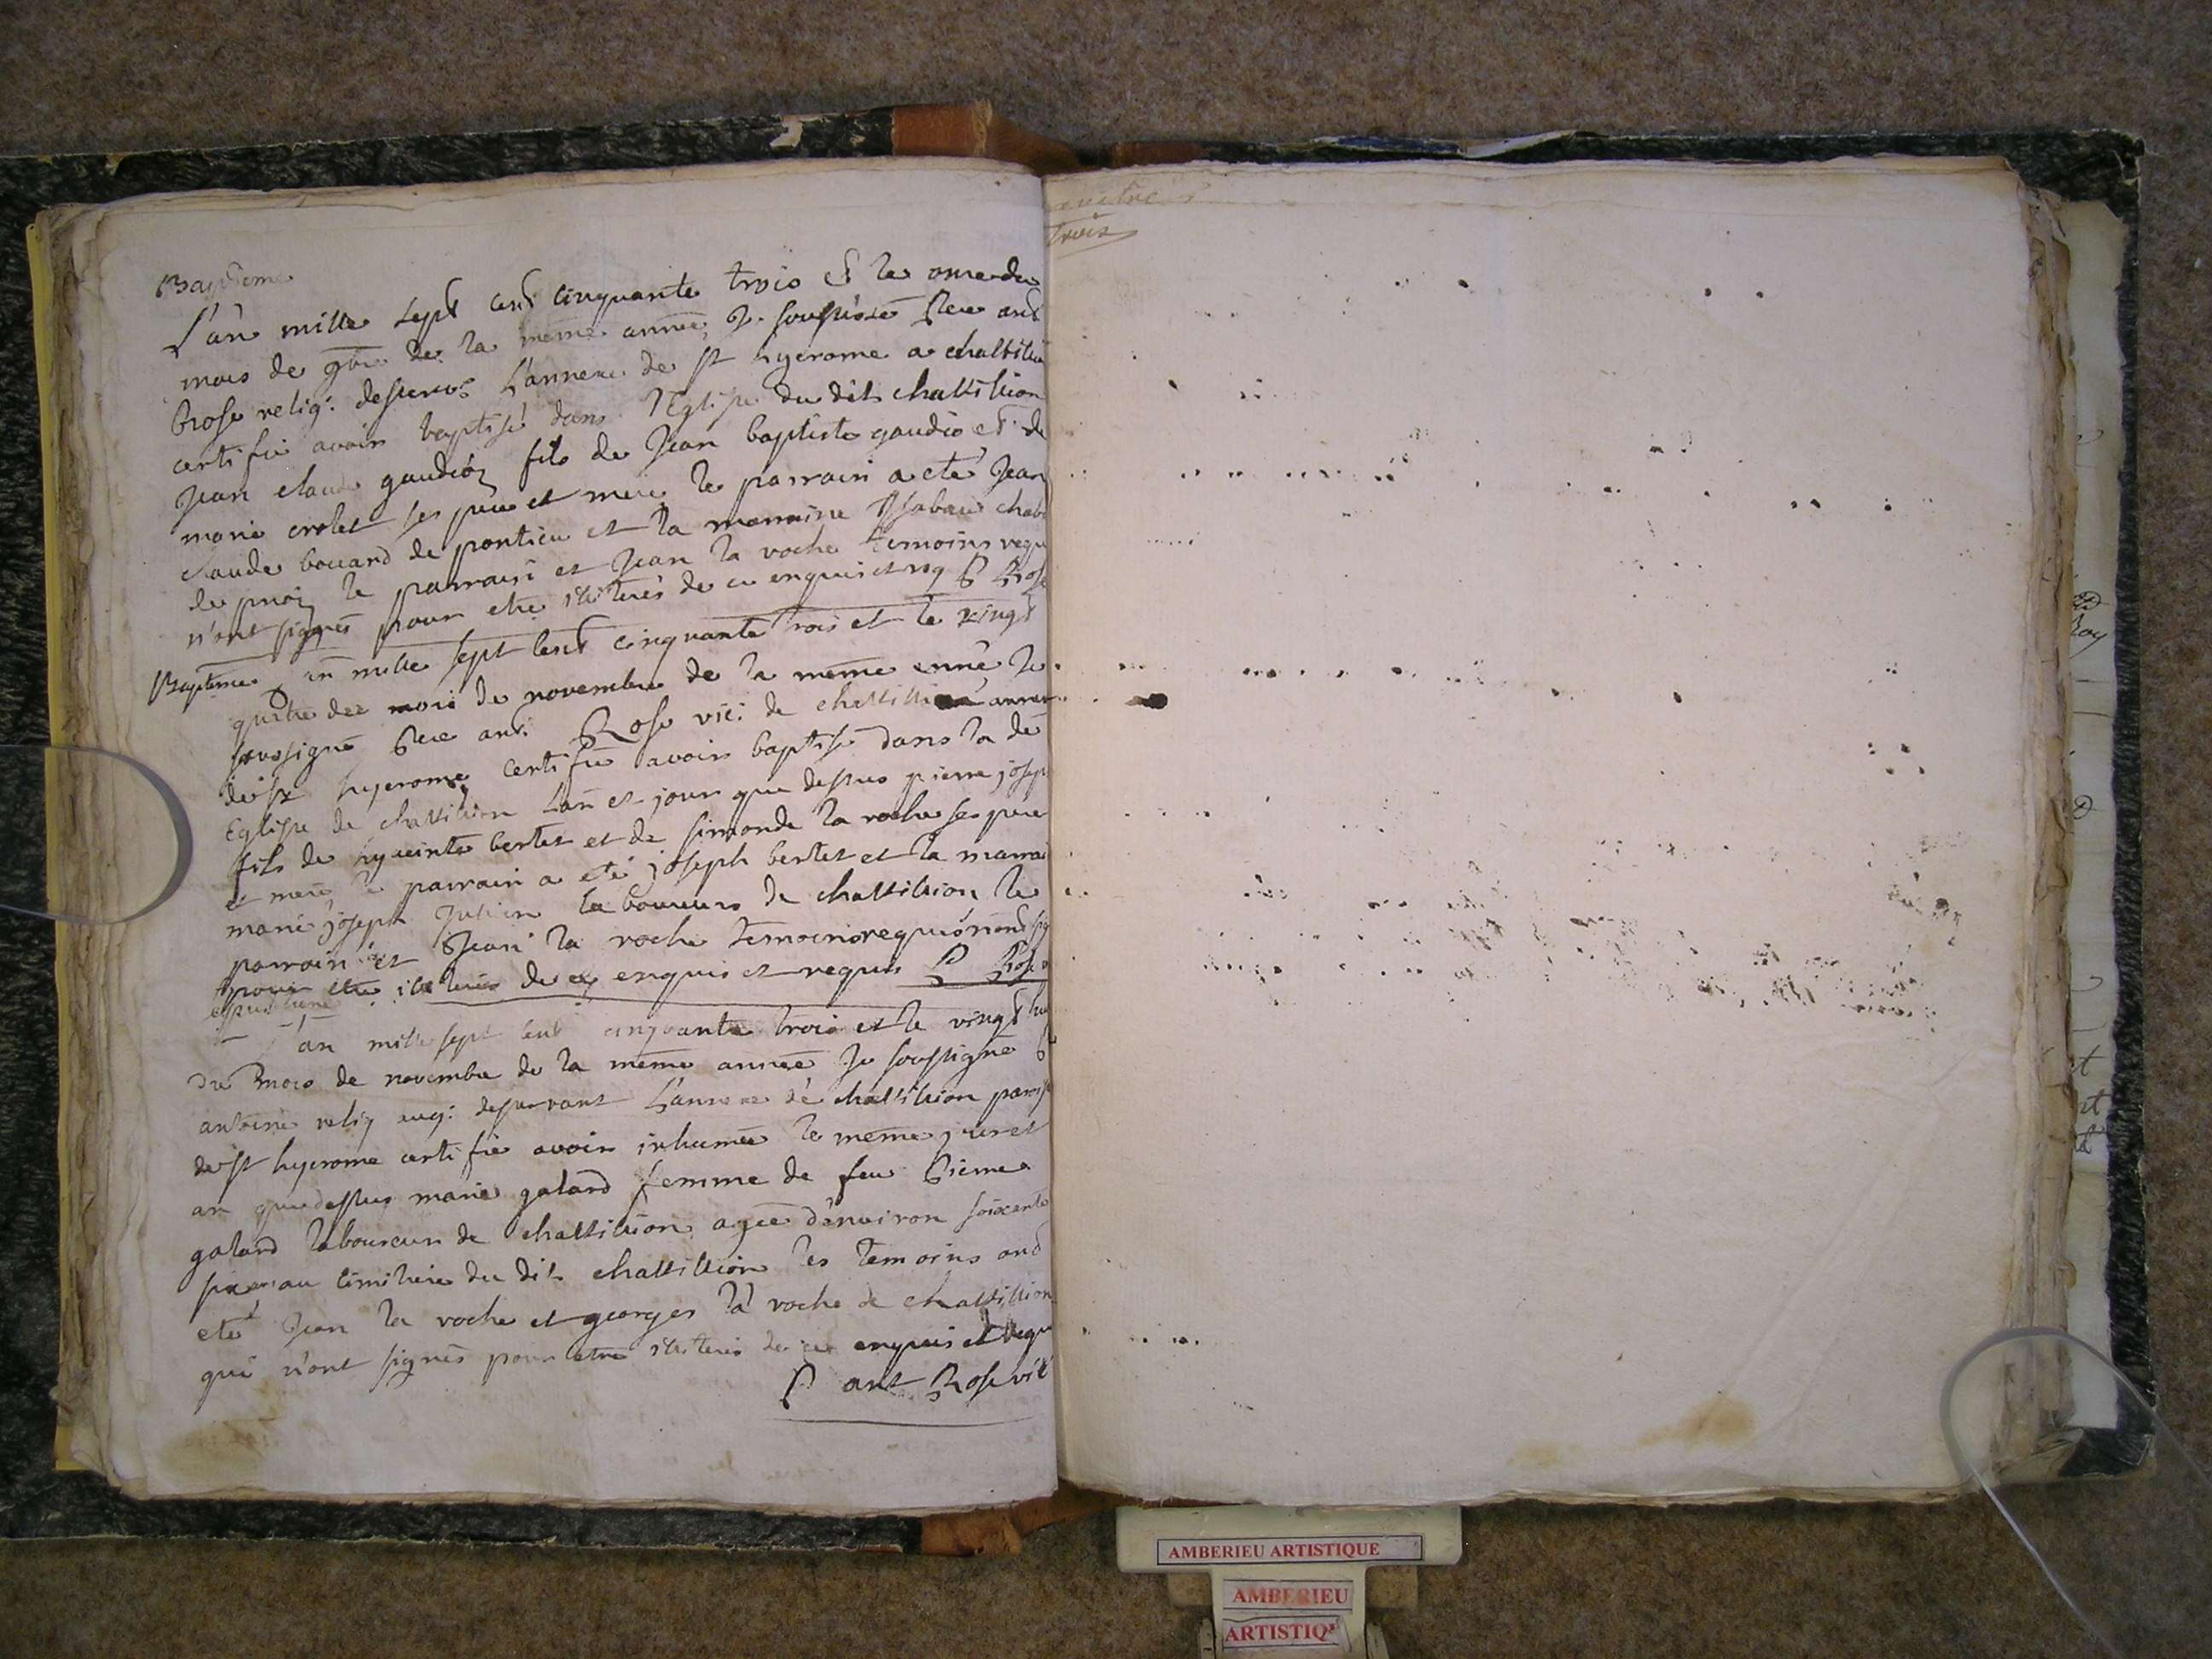 Bapteme
L'an mille sept cent cinquante trois et le onze du
mois de 9bre de la meme année, Je soussigné Pere ant
Rose relig: desserv: L'annexe de st hyerome a chattillion
certifie avoir baptisé dans l'Eglise du dit chattillion
Jean claude gaudion fils de Jean baptiste gaudio et de
marie crolet ses pere et mere le parrain a eté Jean
claude bouard de et la marraine Isabau
de le parrain et Jean la roche temoins requ
n'ont signés pour etre illiterés de ce enquis et req P Rose
Baptême L'an mille sept cent cinquante trois et le vingt
quatre du mois de novembre de la meme année Je
soussigné Pere ant: Rose vic: de chattillion annexe
de st hyerome certifie avoir baptisé dans la de
Eglise de chattillion L'an et jour que dessus pierre joseph
fils de hyacinte bertet et de simonde la roche ses pere
et mere, le parrain a eté joseph bertet et la marrai
marie joseph Julien laboureurs de chattillion le
parrain et Jean la roche temoins requis n'ont sig
pour etre illiterés de ce enquis et requis P Rose v
L'an mille sept cent cinquante trois et le vingt
du mois de novembre de la meme année Je soussigné P
antoine relig aug: desservant L'annexe de chattillion parois
de st hyerome certifie avoir inhumée le meme jour et
an que dessus marie galand femme de feu Pierre
galand laboureur de chattillion agée d'environ soixante
six ans au cimitiere du dit chattillion les temoins ont
eté Jean la roche et georges la roche de chattillion
qui n'ont signés pour etre illiterés de ce enquis et requ
P ant Rose vic
trois
AMBERIEU ARTISTIQUE
AMBERIEU
ARTISTIQ